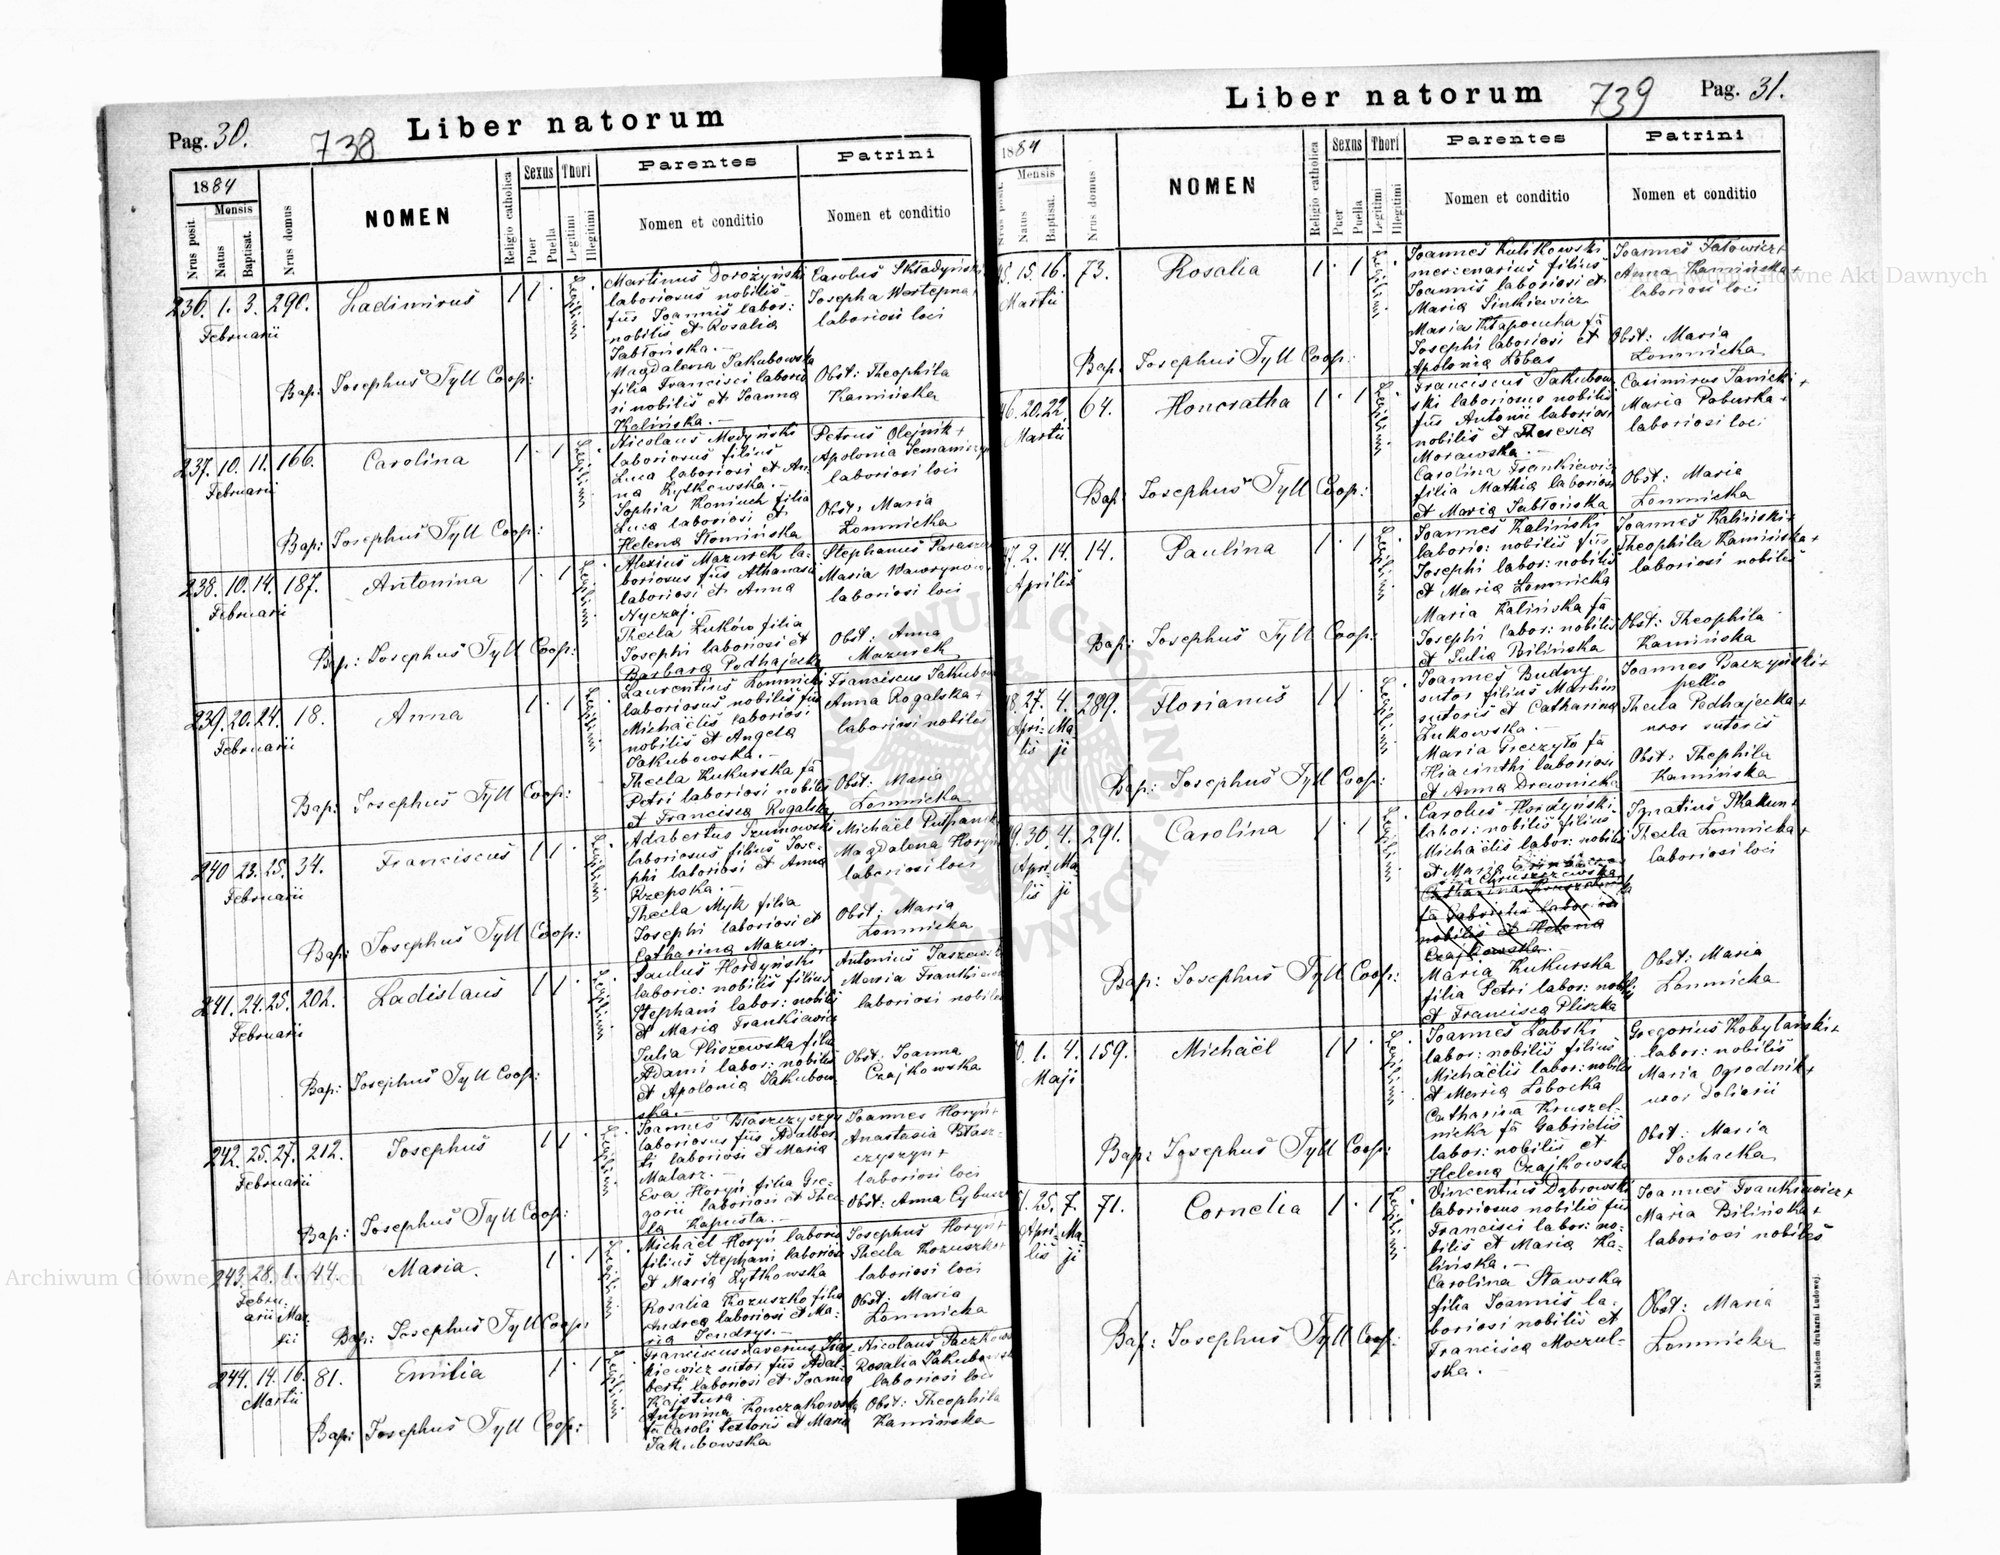 Pag. 30.
738
Liber natorum
1884
Mensis
Nrus posit.
Natus
Baptisat.
Nrus domus
NOMEN
Religio catholica
Sexus
Puer
Puella
Thori
Legitimi
Illegitimi
Parentes
Nomen et conditio
Patrini
Nomen et conditio
236. 1. 3. 290.
Februarii
Ladimirus
1 1
Legitim
Martinus Dorożyński
laboriosus nobilis
fus Joannis labor:
nobilis et Rosalia
Jabłońska.
Magdalena Jakubowska
filia Francisci laborio
si nobilis et Joanna
Kalińska.
Carolus Składyński
Josepha Wartepna
laboriosi loci
Obst: Theophila
Kamińska
Bap: Josephus Tyll Coop:
237. 10. 11. 166.
Februarii
Carolina
1 1
Legitim
Nicolaus Medyński
laboriosus filius
Luca laboriosi et An
na Kytkowska.
Sophia Koniuch filia
Luca laboriosi et
Helena Słomińska
Petrus Olejnik +
Apolonia
laboriosi loci
Obst: Maria
Łomnicka
Bap: Josephus Tyll Coop:
238. 10. 14. 187.
Februarii
Antonina
1 1
Legitim
Alexius Mazurek la
boriosus fus Athanasii
laboriosi et Anna
Nyczaj.
Thecla Łuków filia
Josephi laboriosi et
Barbara Podhajecka
Stephanus
Maria
laboriosi loci
Obst: Anna
Mazurek
Bap: Josephus Tyll Coop:
239. 20. 24. 18.
Februarii
Anna
1 1
Legitim
Laurentius Łomnicki
laboriosus nobilis fus
Michaëlis laboriosi
nobilis et Angela
Jakubowska.
Thecla Kukurska fa
Petri laboriosi nobilis
et Francisca Rogalska
Franciscus Jakubow
Anna Rogalska +
laboriosi nobiles
Obst: Maria
Łomnicka
Bap: Josephus Tyll Coop:
240 23. 25. 34.
Februarii
Franciscus
1 1
Legitim
Adabertus Szumowski
laboriosus filius Jose
phi laboriosi et Anna
Rzepska.
Thecla Myk filia
Josephi laboriosi et
Catharina Mazur.
Michaël
Magdalena Horyń
laboriosi loci
Obst: Maria
Łomnicka
Bap: Josephus Tyll Coop:
241. 24. 25. 202.
Februarii
Ladislaus
1 1
Legitim
Paulus Hordyński
laborio: nobilis filius
Stephani labor: nobilis
et Maria Frankiewicz
Julia Pliszewska filia
Adami labor: nobilis
et Apolonia Jakubow
ska.
Antonius
Maria Frankiewicz
laboriosi nobiles
Obst: Joanna
Czajkowska
Bap: Josephus Tyll Coop:
242. 25. 27. 212.
Februarii
Josephus
1 1
Legitim
Joannes Błaszczyszyn
laboriosus fus Adalber
ti laboriosi et Maria
Malarz.
Eva Horyń filia Gre
gorii laboriosi et Thec
la Kapusta.
Joannes Horyń +
Anastasia Błasz
czyszyn +
laboriosi loci
Obst: Anna
Bap: Josephus Tyll Coop:
243. 28. 1. 44.
Febru
arii Mar
tii
Maria
1 1
Legitim
Michaël Horyń laborio
filius Stephani laboriosi
et Maria Żytkowska
Rosalia Kożuszko filia
Andrea laboriosi et Ma
ria Sendrys.
Josephus Horyń +
Thecla Kożuszko +
laboriosi loci
Obst: Maria
Łomnicka
Bap: Josephus Tyll Coop:
244. 14. 16. 81.
Martii
Emilia
1 1
Legitim
Franciscus Xaverius
kiewicz sutor fus Adal
berti laboriosi et Joanna
Kajstura
Antonina Konczakowska
fa Caroli textoris et Maria
Jakubowska
Nicolaus
Rosalia Jakubowska
laboriosi loci
Obst: Theophila
Kamińska
Bap: Josephus Tyll Coop:
Liber natorum
739
Pag. 31.
1884
Mensis
Nrus posit.
Natus
Baptisat.
Nrus domus
NOMEN
Religio catholica
Sexus
Puer
Puella
Thori
Legitimi
Illegitimi
Parentes
Nomen et conditio
Patrini
Nomen et conditio
5. 15. 16. 73.
Martii
Rosalia
1 1
Legitim
Joannes Kulikowski
mercenarius filius
Joannis laboriosi et
Maria Sinkiewicz
Maria Kłapoucha fa
Josephi laboriosi et
Apolonia Łobas
Joannes Fałowicz +
Anna Kamińska +
laboriosi loci
Obst: Maria
Łomnicka
Bap: Josephus Tyll Coop:
6. 20. 22. 64.
Martii
Honoratha
1 1
Legitim
Franciscus Jakubow
ski laboriosus nobilis
fus Antonii laboriosi
nobilis et Theresia
Morawska.
Carolina Frankiewicz
filia Mathia laboriosi
et Maria Jabłońska
Casimirus Janicki +
Maria Paburka +
laboriosi loci
Obst: Maria
Łomnicka
Bap: Josephus Tyll Coop:
7. 2. 14. 14.
Aprilis
Paulina
1 1
Legitim
Joannes Kaliński
laborio: nobilis fus
Josephi labor: nobilis
et Maria Łomnicka
Maria Kalińska fa
Josephi labor: nobilis
et Julia Bilińska
Joannes Kaliński +
Theophila Kamińska +
laboriosi nobiles
Obst: Theophila
Kamińska
Bap: Josephus Tyll Coop:
8. 27. 4. 289.
Apri Ma
lis ji
Florianus
1 1
Legitim
Joannes Budny
sutor filius Martini
sutoris et Catharina
Żukowska.
Maria Greczyło fa
Hiacinthi laboriosi
et Anna Drewnicka
Joannes Baczyński +
pellio
Thecla Podhajecka +
uxor sutoris
Obst: Theophila
Kamińska
Bap: Josephus Tyll Coop:
9. 30. 4. 291.
Apri Ma
lis ji
Carolina
1 1
Legitim
Carolus Hordyński
labor: nobilis filius
Michaëlis labor: nobilis
et Maria
nobilis et Helena
Czajkowska.
Maria Kukurska
filia Petri labor: nobilis
et Francisca Pliszka
Ignatius Tkakun +
Thecla Łomnicka +
laboriosi loci
Obst: Maria
Łomnicka
Bap: Josephus Tyll Coop:
0. 1. 4. 159.
Maji
Michaël
1 1
Legitim
Joannes Łabski
labor: nobilis filius
Michaëlis labor: nobilis
et Maria Łobocka
Catharina Kruszel
nicka fa Gabrielis
labor: nobilis et
Helena Czajkowska
Gregorius Kobylański +
labor: nobilis
Maria Ogrodnik +
uxor doliarii
Obst: Maria
Sochacka
Bap: Josephus Tyll Coop:
1. 25. 7. 71.
Apri Ma
lis ji
Cornelia
1 1
Legitim
Vincentius Dąbrowski
laboriosus nobilis fus
Francisci labor: no
bilis et Maria Ka
lińska.
Carolina Sławska
filia Joannis la
boriosi nobilis et
Francisca Moczul
ska.
Joannes Frankiewicz +
Maria Bilińska +
laboriosi nobiles
Obst: Maria
Łomnicka
Bap: Josephus Tyll Coop:
Nakładem Drukarni Ludowej.
Archiwum Główne Akt Dawnych
Archiwum Główne Akt Dawnych
ARCHIWUM GŁÓWNE AKT DAWNYCH